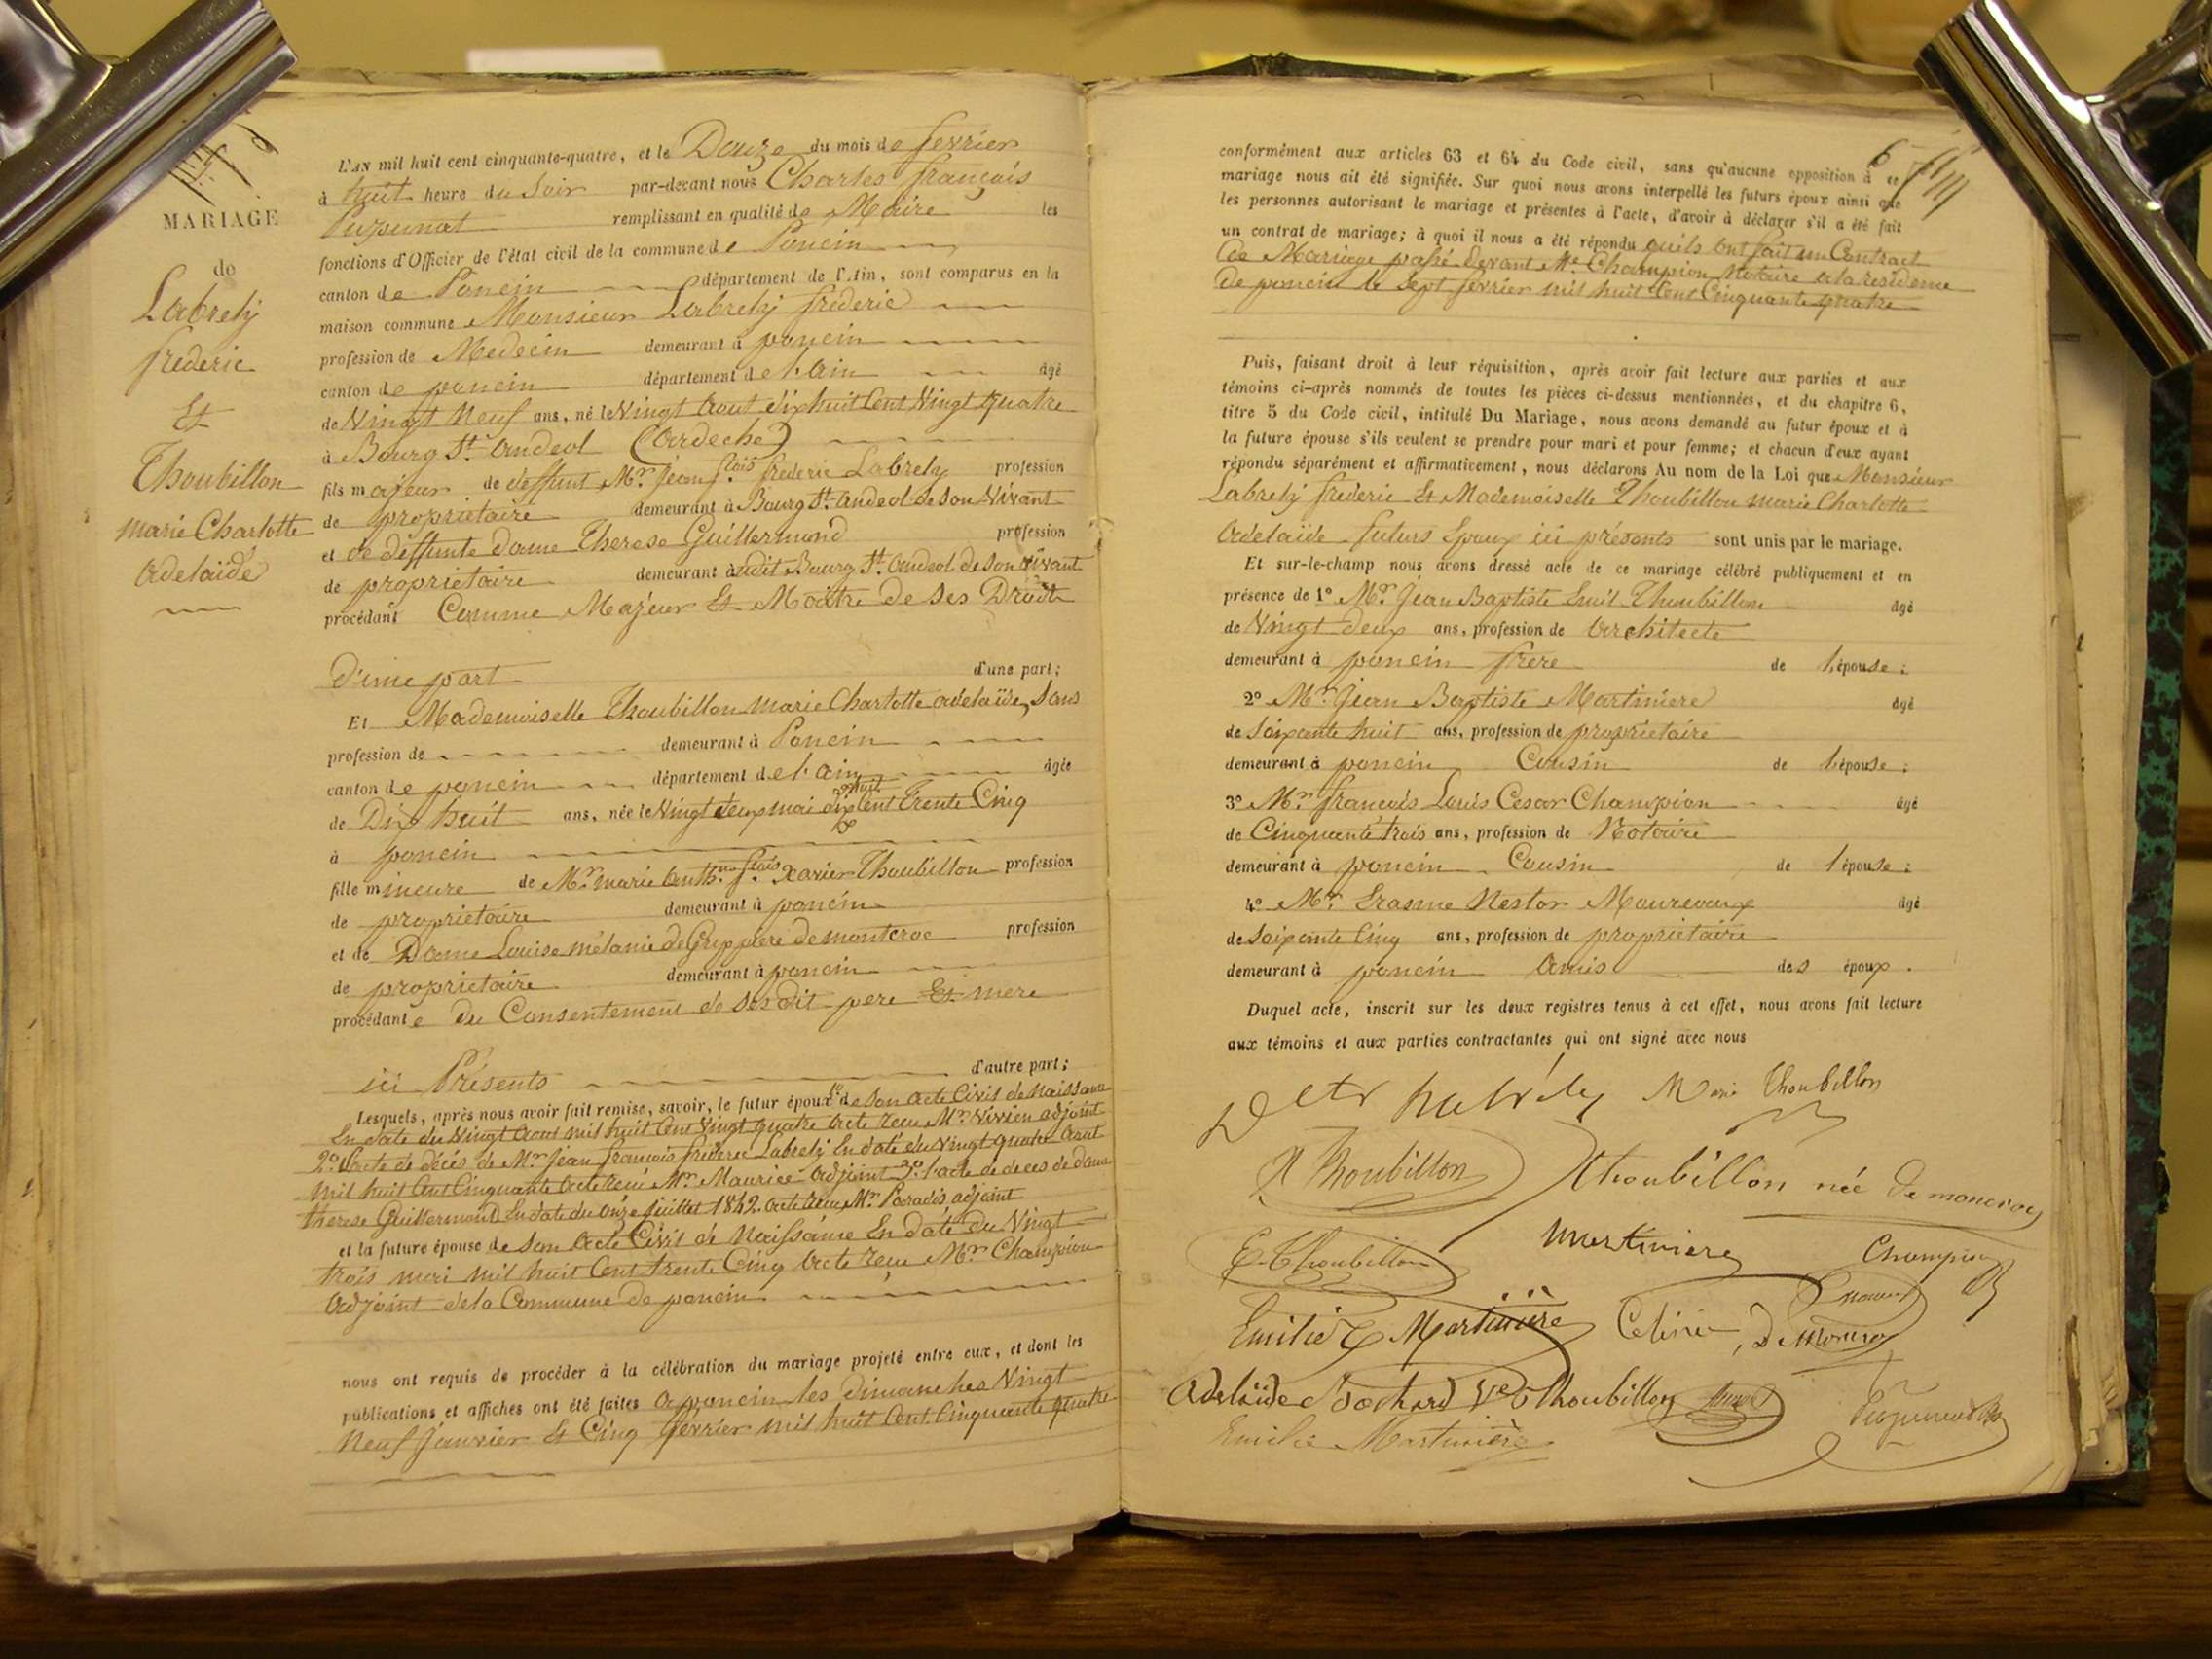 MARIAGE
de
Labrely
frederic
Et
Thoubillon
marie Charlotte
adelaïde
L'AN mil huit cent cinquante-quatre, et le Douze du mois de fevrier
à huit heure du Soir par-devant nous Charles françois
remplissant en qualité de Maire les
fonctions d'Officier de l'état civil de la commune de Poncin
canton de Poncin département de l'Ain, sont comparus en la
maison commune Monsieur Labrely frederic
profession de Medecin demeurant à poncin
canton de poncin département de l'ain âgé
de Vingt Neuf ans, né le Vingt Aout dix huit Cent Vingt quatre
à Bourg St. andeol (ardeche)
fils majeur de deffunt Mr. Jean f.çois frederic Labrely profession
de proprietaire demeurant à Bourg St. andeol de Son Vivant
et de deffunte dame Therese Guillermond profession
de proprietaire demeurant audit Bourg St. andeol de Son Vivant
procédant Comme Majeur Et Maitre de Ses Droits
d'une part d'une part;
Et Mademoiselle Thoubillon marie Charlotte adelaïde, Sans
profession de demeurant à Poncin
canton de poncin département de l'ain âgée
de Dix huit ans, née le Vingt deux mai dix huit Cent Trente Cinq
à poncin
fille mineure de Mr. marie f.çois Xavier Thoubillon profession
de proprietaire demeurant à poncin
et de Dame Louise mélanie de profession
de proprietaire demeurant à poncin
procédante du Consentement de Ses dit pere Et mere
ici Présents d'autre part;
Lesquels, après nous avoir fait remise, savoir, le futur époux 1º de Son acte Civil de Naissance
En date du Vingt Aout mil huit Cent Vingt quatre acte recu Mr. Vivien adjoint
2º L'acte de décés de Mr. Jean francois frederic Labrely En date du Vingt quatre Aout
mil huit Cent Cinquante acte recu Mr. Maurice adjoint 3º l'acte de deces de dame
therese Guillermond En date du onze Juillet 1842. acte recu Mr. Paradis adjoint
et la future épouse de Son Acte Civil de Naissance En date du Vingt
trois mai mil huit Cent trente Cinq Acte recu Mr. Champion
adjoint de la Commune de poncin
nous ont requis de procéder à la célébration du mariage projeté entre eux, et dont les
publications et affiches ont été faites a poncin les dimanches Vingt
Neuf Janvier Et Cinq fevrier mil huit Cent Cinquante quatre
6
conformément aux articles 63 et 64 du Code civil, sans qu'aucune opposition à ce
mariage nous ait été signifiée. Sur quoi nous avons interpellé les futurs époux ainsi que
les personnes autorisant le mariage et présentes à l'acte, d'avoir à déclarer s'il a été fait
un contrat de mariage; à quoi il nous a été répondu quils ont fait un Contract
de Mariage passé devant Me. Champion Notaire a la residence
de poncin le Sept fevrier mil huit Cent Cinquante quatre
Puis, faisant droit à leur réquisition, après avoir fait lecture aux parties et aux
témoins ci-après nommés de toutes les pièces ci-dessus mentionnées, et du chapitre 6,
titre 5 du Code civil, intitulé Du Mariage, nous avons demandé au futur époux et à
la future épouse s'ils veulent se prendre pour mari et pour femme; et chacun d'eux ayant
répondu séparément et affirmativement, nous déclarons Au nom de la Loi que Monsieur
Labrely frederic Et Mademoiselle Thoubillon marie Charlotte
adelaïde futurs Epoux ici présents sont unis par le mariage.
Et sur-le-champ nous avons dressé acte de ce mariage célébré publiquement et en
présence de 1º Mr. Jean Baptiste Emil Thoubillon âgé
de Vingt deux ans, profession de Architecte
demeurant à poncin frere de l'épouse;
2º Mr. Jean Baptiste Martiniere âgé
de Soixante huit ans, profession de proprietaire
demeurant à poncin Cousin de l'épouse;
3º Mr. francois Louis Cesar Champion âgé
de Cinquante trois ans, profession de Notaire
demeurant à poncin Cousin de l'épouse;
4º Mr. Erasme Nestor âgé
de Soixante Cinq ans, profession de proprietaire
demeurant à poncin Amis des époux.
Duquel acte, inscrit sur les deux registres tenus à cet effet, nous avons fait lecture
aux témoins et aux parties contractantes qui ont signé avec nous
Labrely Thoubillon
Thoubillon Thoubillon née
E. Thoubillon Martiniere Champion
Emilie Martinière
Adelaïde Ve Thoubillon
Emilie Martinière